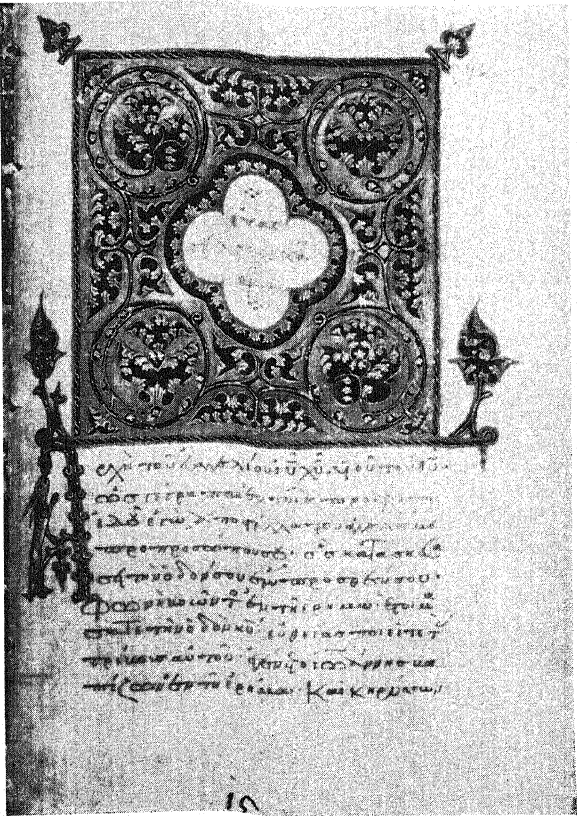 Ἀρχὴ τοῦ εὐαγγελίου ἰῦ χῦ υἱοῦ τοῦ θῦ·
ὡς γέγραπται ἐν τοῖς προφήταις
ἰδοὺ ἐγὼ ἀποστέλλω τὸν ἄγγελόν μου
πρὸ προσώπου σου· ὃς κατασκευά
σει τὴν ὁδόν σου ἔμπροσθέν σου·
φωνὴ βοῶντος ἐν τῇ ἐρήμω· ἑτοιμά
σατε τὴν ὁδὸν κῦ εὐθείας ποιεῖτε τ
τρίβους αὐτοῦ· ἐγένετο ἰωάννης βα
πτίζων ἐν τῇ ἐρήμω· καὶ κηρύσσων